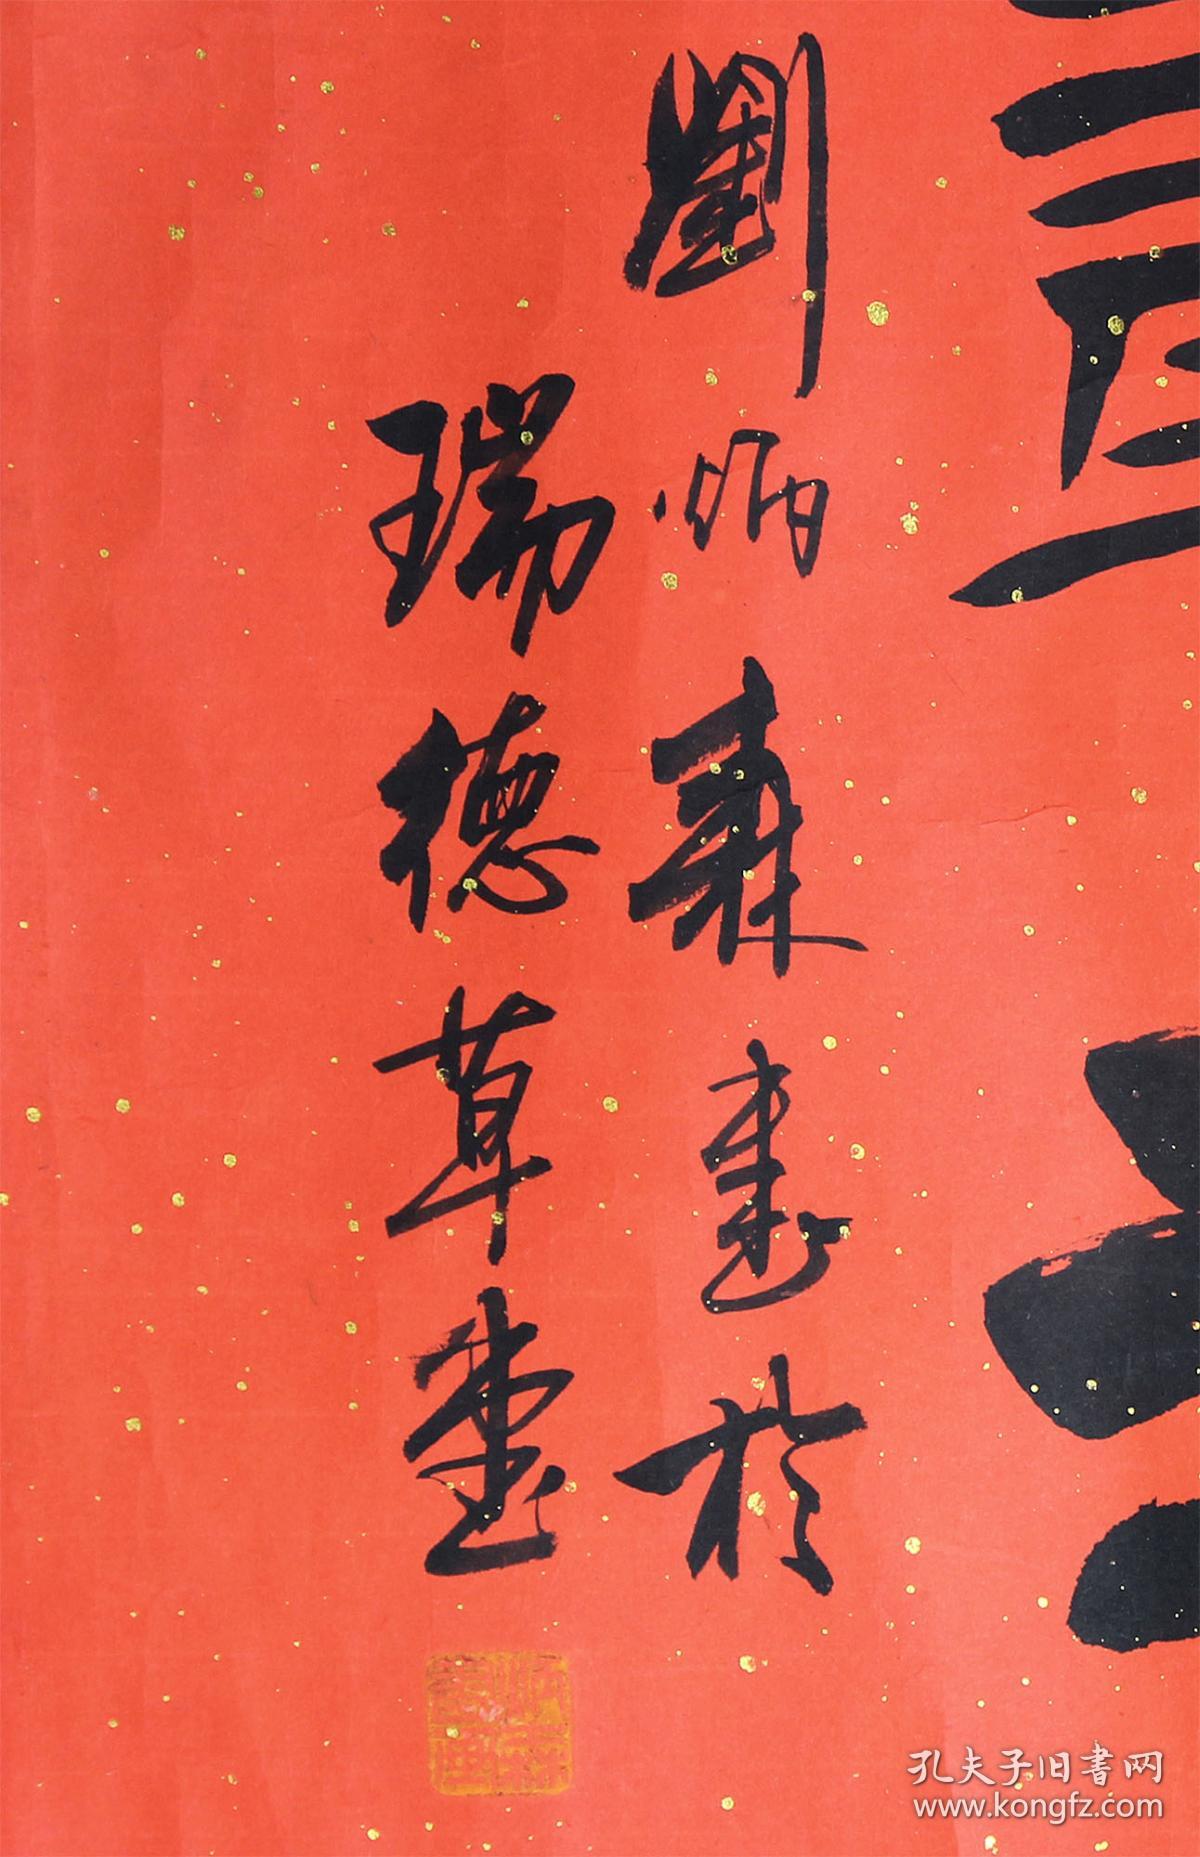 劉炳森書於
瑞德草堂
孔夫子旧書网
www.kongfz.com